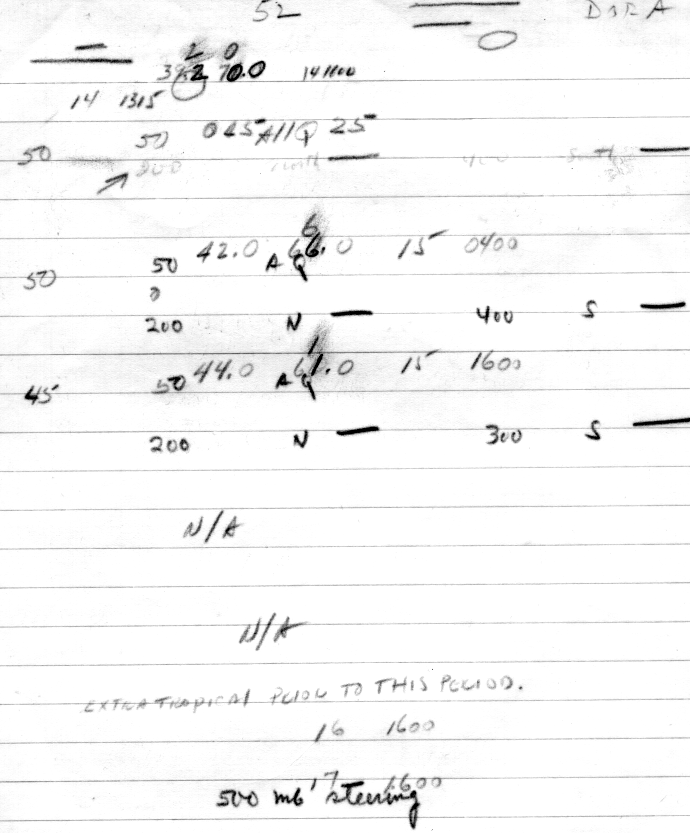 52 DORA
2 0
70.0 141800
14 1315
50 50 045 All Q 25
200 north 400 south
42.0 66.0 15 0400
50 50 A Q
200 N 400 S
45 50 44.0 A Q 61.0 15 1600
200 N 300 S
N/A
N/A
EXTRATROPICAL PRIOR TO THIS PERIOD.
16 1600
17 1600
500 mb steering